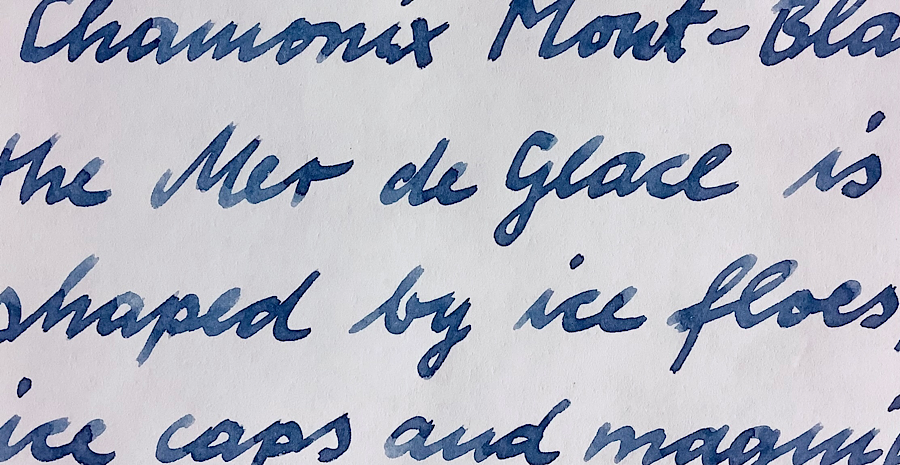 Chamonix Mont-Bla
the Mer de Glace is
shaped by ice floes,
ice caps and